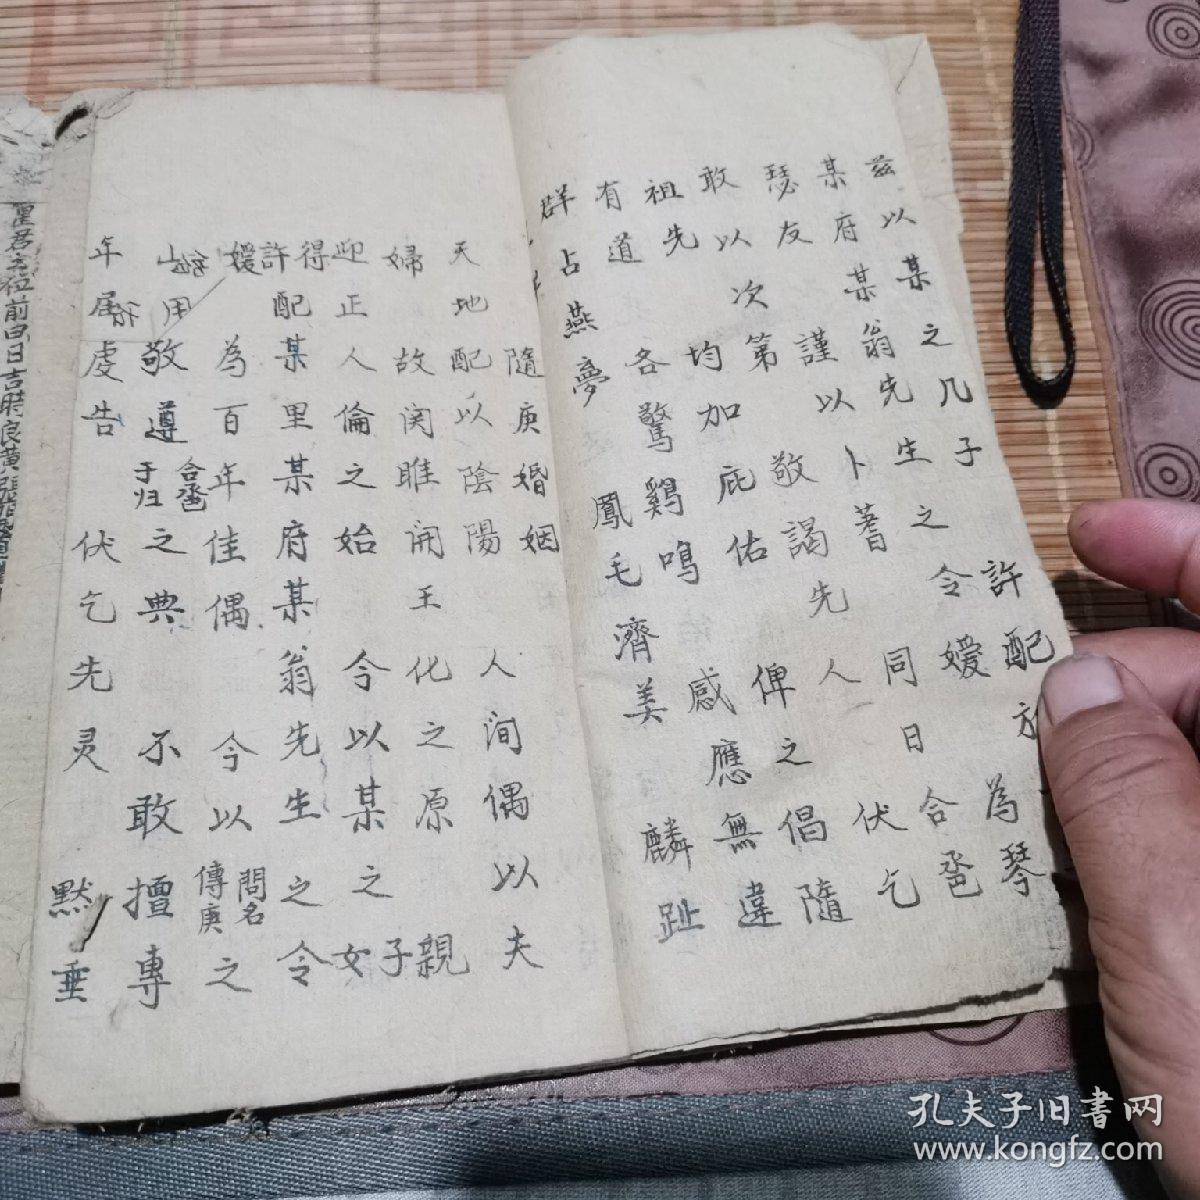 茲以某之几子 許配
某府某翁先生之令嫒 為琴
瑟友 謹以卜蓍 同日合巹
敢以次第 敬謁先人 伏乞
祖先 均加庇佑 俾之倡隨
有道 各驚鷄鳴 感應無違
群占燕夢 鳳毛濟美 麟趾
隨庚婚姻
天地配以陰陽 人间偶以夫
婦 故関雎開王化之原 親
迎正人倫之始 今以某之子女
得許配某里某府某翁先生之令
嫒為百年佳偶 今以問名傳庚之
用敬遵合巹于归之典 不敢擅專
年居虔告 伏乞先灵 默垂
位前曰日吉時良
孔夫子旧书网
www.kongfz.com